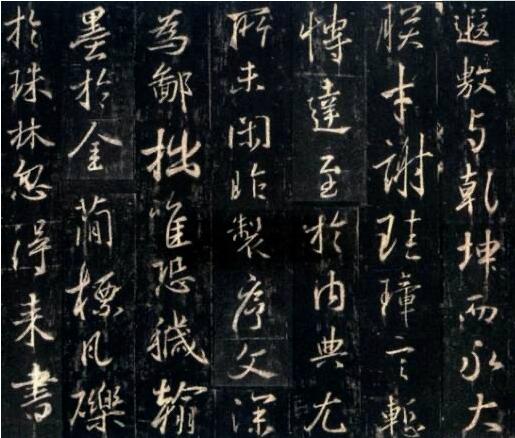 遐敷与乾坤而永大
朕才謝珪璋言慙
博達至於内典尤
所未閑昨製序文深
為鄙拙唯恐穢翰
墨於金簡標瓦礫
於珠林忽得来書